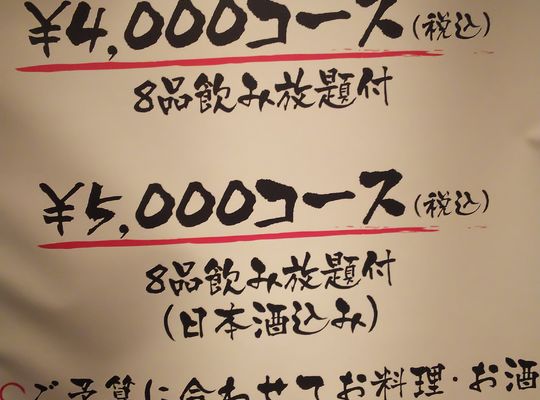 ¥4,000コース(税込)
8品飲み放題付
¥5,000コース(税込)
8品飲み放題付
(日本酒込み)
ご予算に合わせてお料理・お酒